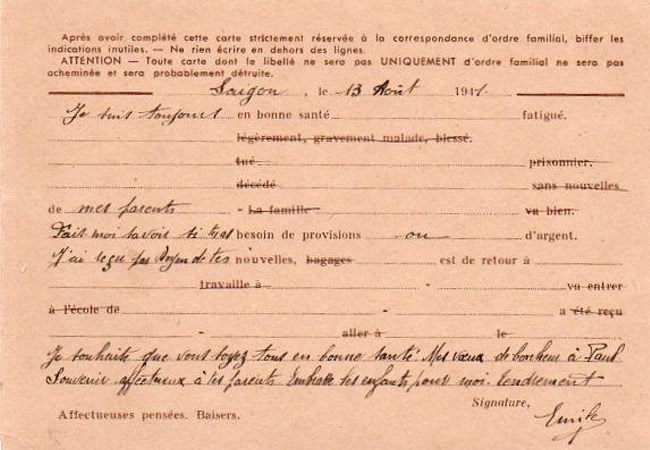 Après avoir complété cette carte strictement réservée à la correspondance d'ordre familial, biffer les
indications inutiles. — Ne rien écrire en dehors des lignes.
ATTENTION — Toute carte dont le libellé ne sera pas UNIQUEMENT d'ordre familial ne sera pas
acheminée et sera probablement détruite.
Saigon, le 13 Août 1941.
Je suis toujours en bonne santé fatigué.
légèrement, gravement malade, blessé.
tué prisonnier.
décédé sans nouvelles
de mes parents - La famille va bien.
Fais moi savoir si tu as besoin de provisions ou d'argent.
J'ai reçu par de tes nouvelles, bagages est de retour à
travaille à va entrer
à l'école de a été reçu
aller à le
Je souhaite que vous soyez tous en bonne santé. Mes vœux de bonheur à Paul
Souvenir affectueux à tes parents Embrasse tes enfants pour moi tendrement
Signature,
Affectueuses pensées. Baisers.
Emile